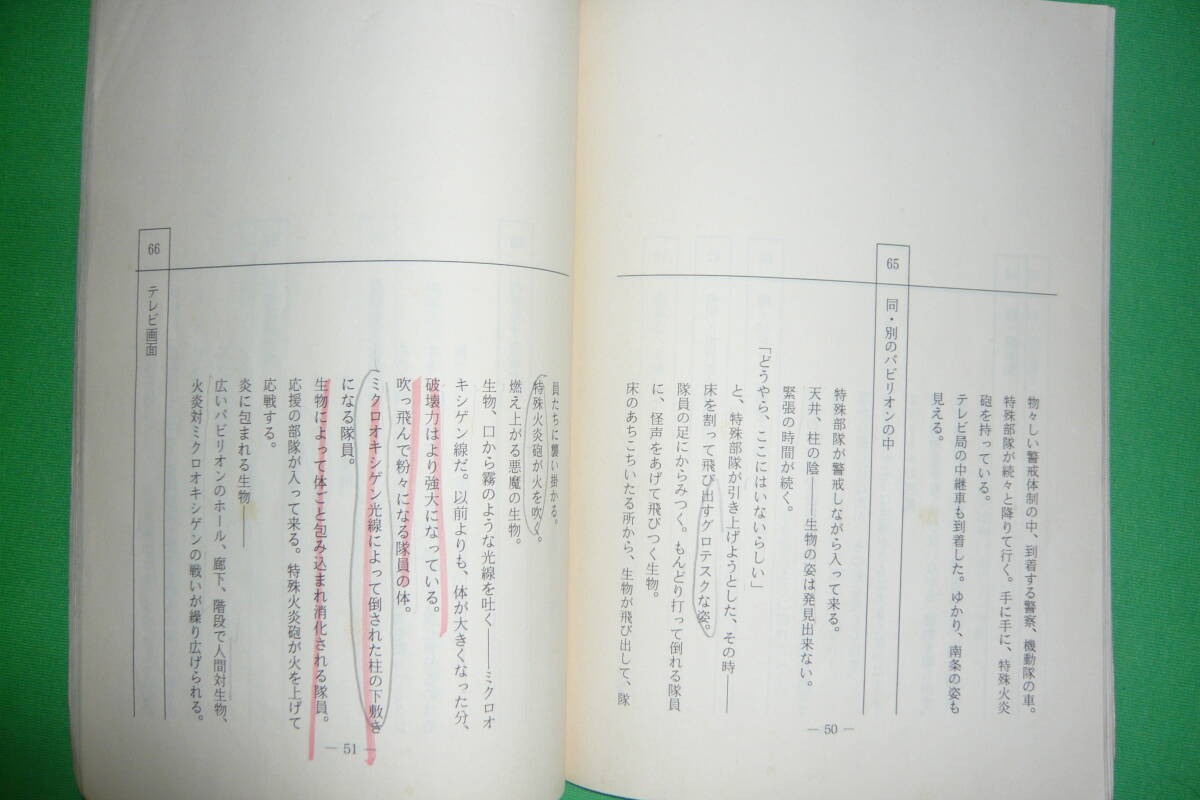 物々しい警戒体制の中、到着する警察、機動隊の車。
特殊部隊が続々と降りて行く。手に手に、特殊火炎
砲を持っている。
テレビ局の中継車も到着した。ゆかり、南条の姿も
見える。
65
同・別のパビリオンの中
特殊部隊が警戒しながら入って来る。
天井、柱の陰――生物の姿は発見出来ない。
緊張の時間が続く。
「どうやら、ここにはいないらしい」
と、特殊部隊が引き上げようとした、その時――
床を割って飛び出すグロテスクな姿。
隊員の足にからみつく。もんどり打って倒れる隊員
に、怪声をあげて飛びつく生物。
床のあちこちいたる所から、生物が飛び出して、隊
― 50 ―
員たちに襲い掛かる。
特殊火炎砲が火を吹く。
燃え上がる悪魔の生物。
生物、口から霧のような光線を吐く――ミクロオ
キシゲン線だ。以前よりも、体が大きくなった分、
破壊力はより強大になっている。
吹っ飛んで粉々になる隊員の体。
ミクロオキシゲン光線によって倒された柱の下敷き
になる隊員。
生物によって体ごと包み込まれ消化される隊員。
応援の部隊が入って来る。特殊火炎砲が火を上げて
応戦する。
炎に包まれる生物――
広いパビリオンのホール、廊下、階段で人間対生物、
火炎対ミクロオキシゲンの戦いが繰り広げられる。
66
テレビ画面
― 51 ―